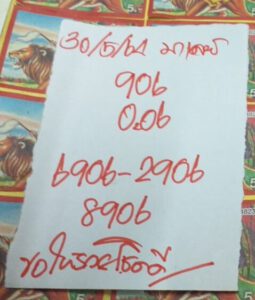 30/5/64 มาเลย์
906
0.06
6906-2906
8906
ขอให้รวยโชคดี